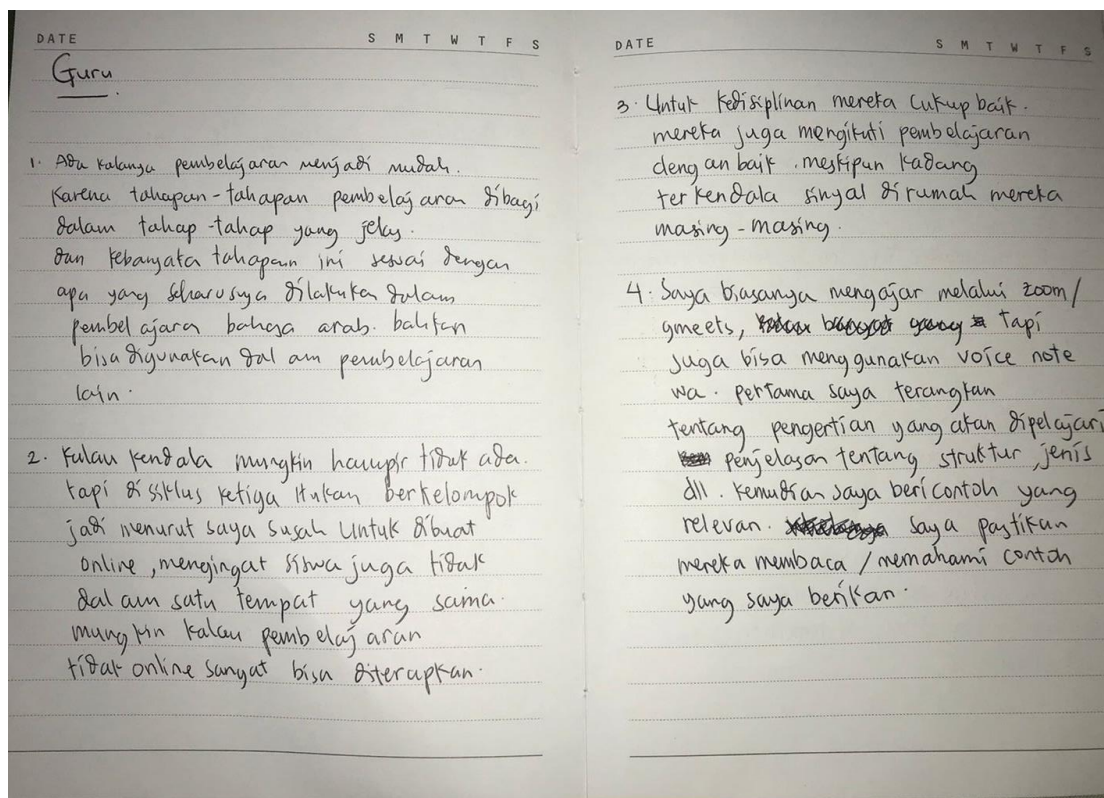 DATE S M T W T F S
Guru
1. Ada kalanya pembelajaran menjadi mudah.
Karena tahapan-tahapan pembelajaran dibagi
dalam tahap-tahap yang jelas.
dan kebanyata tahapan ini sesuai dengan
apa yang seharusnya dilakukan dalam
pembelajaran bahasa arab. bahkan
bisa digunakan dalam pembelajaran
lain.
2. Kalau kendala mungkin hampir tidak ada.
tapi di siklus ketiga itukan berkelompok
jadi menurut saya susah untuk dibuat
online, mengingat siswa juga tidak
dalam satu tempat yang sama.
mungkin kalau pembelajaran
tidak online sangat bisa diterapkan.
DATE S M T W T F S
3. Untuk kedisiplinan mereka cukup baik.
mereka juga mengikuti pembelajaran
dengan baik. meskipun kadang
terkendala sinyal dirumah mereka
masing-masing.
4. Saya biasanya mengajar melalui zoom/
gmeets, tapi
juga bisa menggunakan voice note
wa. pertama saya terangkan
tentang pengertian yang akan dipelajari
penjelasan tentang struktur, jenis
dll. kemudian saya beri contoh yang
relevan. saya pastikan
mereka membaca / memahami contoh
yang saya berikan.